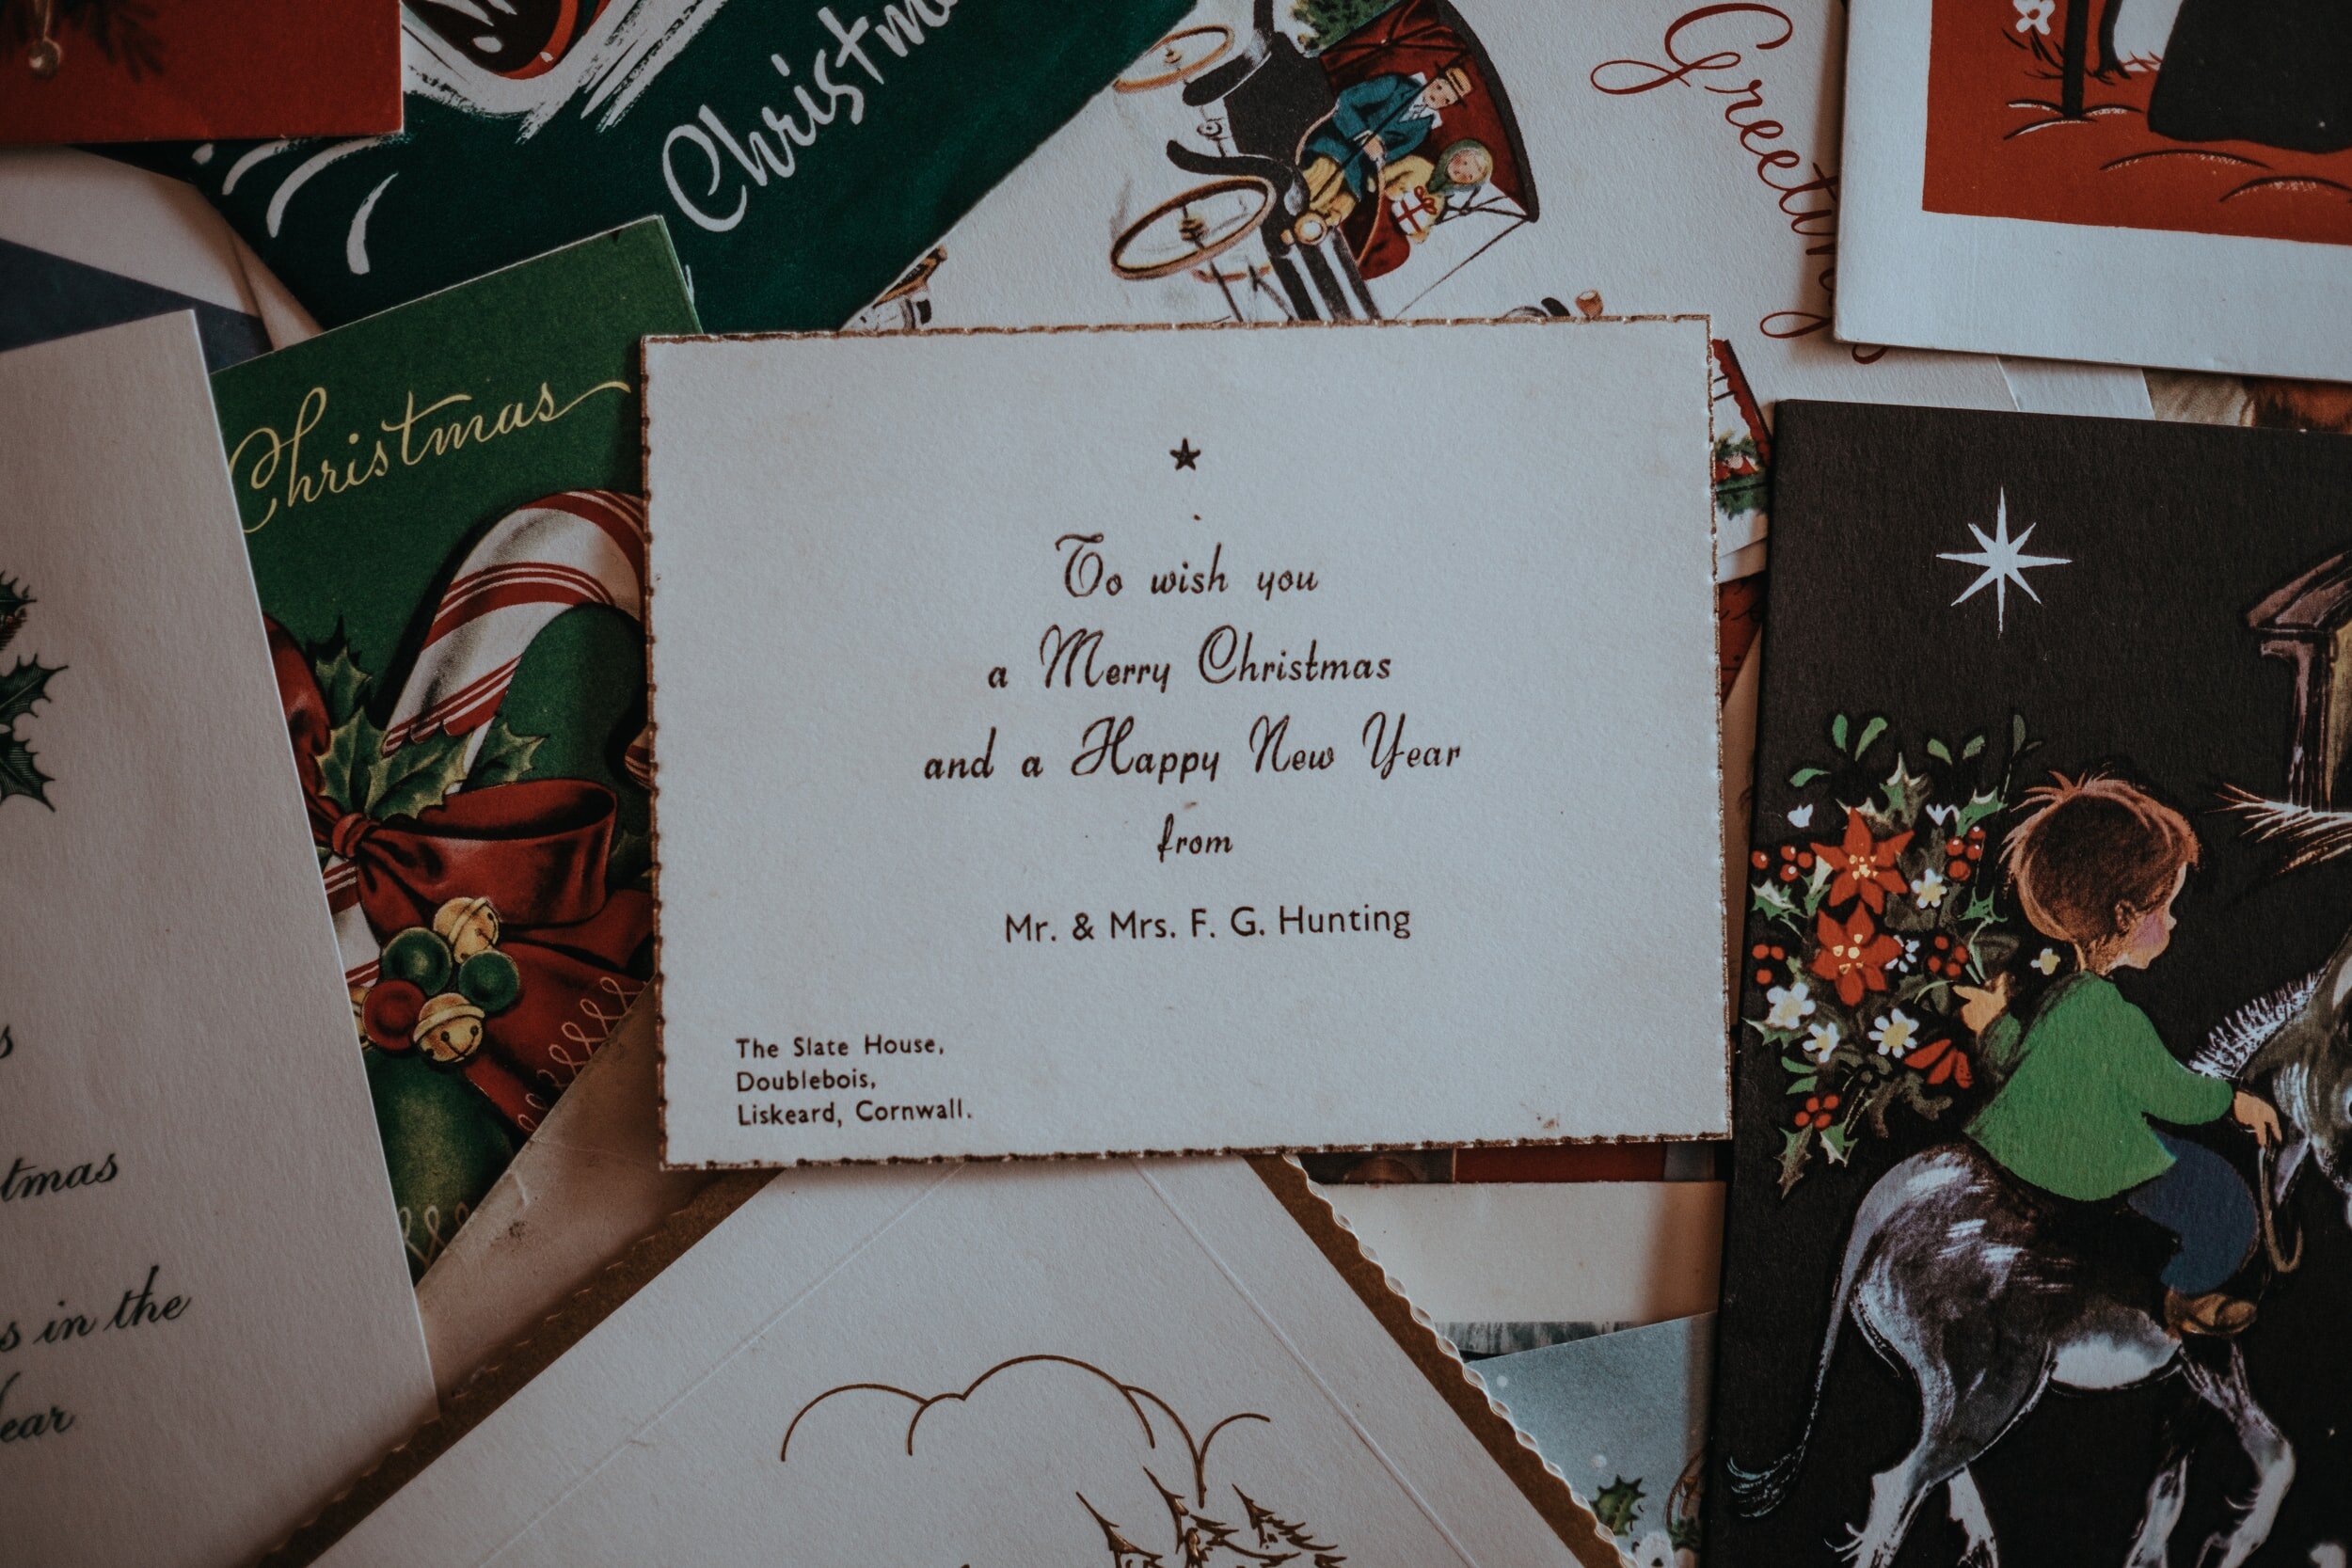 Christma
Greeting
Christmas
To wish you
a Merry Christmas
and a Happy New Year
from
Mr. & Mrs. F. G. Hunting
The Slate House,
Doublebois,
Liskeard, Cornwall.
s
tmas
s in the
ear